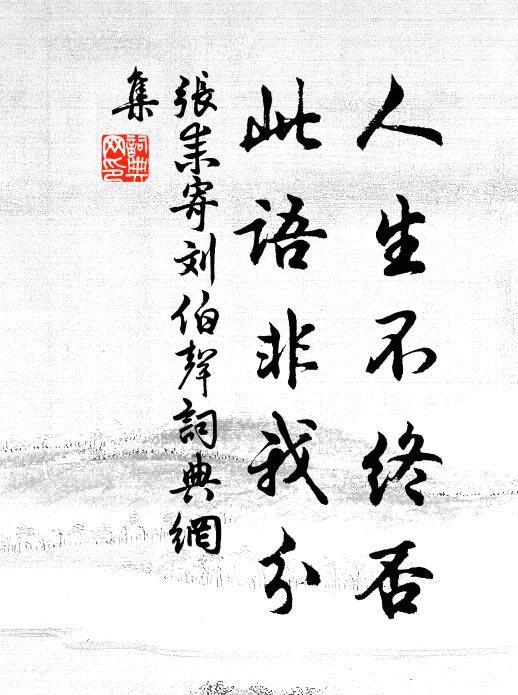 人生不终否
此語非我分
張耒寄刘伯聲詞典網
集
詞典
网印